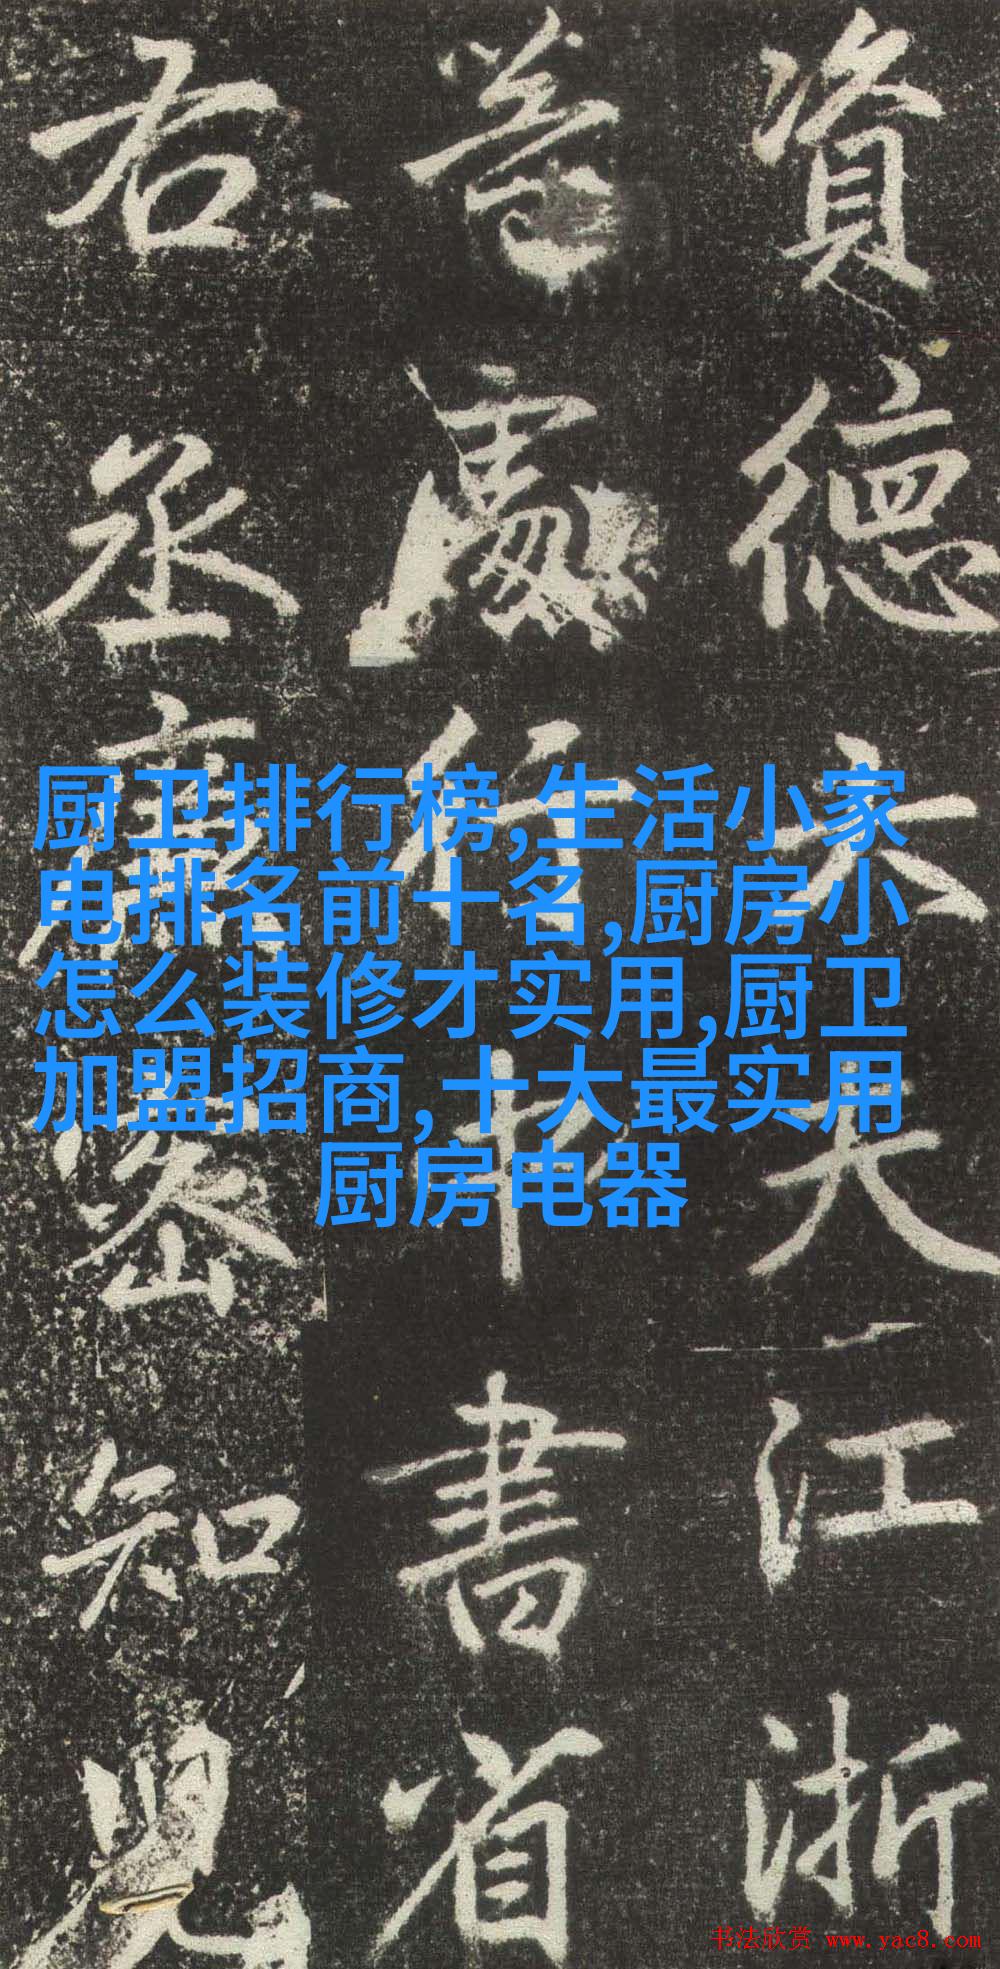 資德大夫江浙
等處行中書省
右丞廉密知兒
厨卫排行榜,生活小家
电排名前十名,厨房小
怎么装修才实用,厨卫
加盟招商,十大最实用
厨房电器
书法欣赏 www.yac8.com